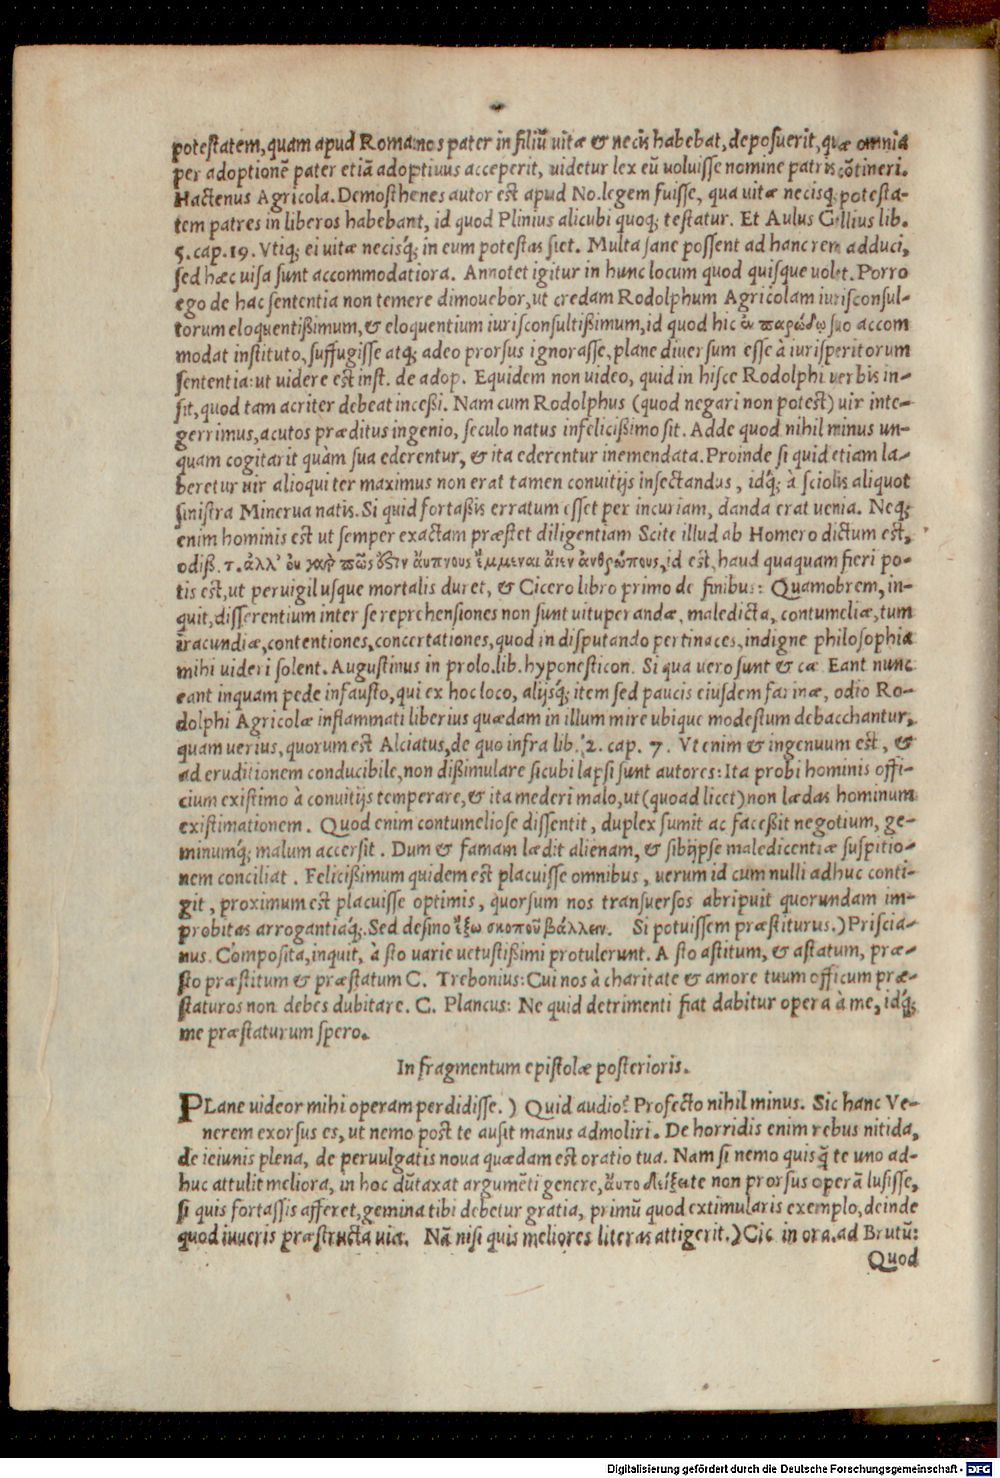 potestatem, quam apud Romanos pater in filiũ uitæ & necis habebat, deposuerit, quæ omnia
per adoptionẽ pater etiã adoptiuus acceperit, uidetur lex eũ uoluisse nomine patris cõtineri.
Hactenus Agricola. Demosthenes autor est apud No. legem fuisse, qua uitæ necisq; potesta-
tem patres in liberos habebant, id quod Plinius alicubi quoq; testatur. Et Aulus Gellius lib.
5. cap. 19. Vtiq; ei uitæ necisq́; in eum potestas siet. Multa sane possent ad hanc rem adduci,
sed hæc uisa sunt accommodatiora. Annotet igitur in hunc locum quod quisque uolet. Porro
ego de hac sententia non temere dimouebor, ut credam Rodolphum Agricolam iurisconsul-
torum eloquentißimum, & eloquentium iurisconsultißimum, id quod hic ἐν παρώδῳ suo accom
modat instituto, suffugisse atq; adeo prorsus ignorasse, plane diuersum esse à iurisperitorum
sententia: ut uidere est inst. de adop. Equidem non uideo, quid in hisce Rodolphi uerbis in-
sit, quod tam acriter debeat inceßi. Nam cum Rodolphus (quod negari non potest) uir inte-
gerrimus, acutos præditus ingenio, seculo natus infelicißimo sit. Adde quod nihil minus un-
quam cogitarit quàm sua ederentur, & ita ederentur inemendata. Proinde si quid etiam la-
beretur uir alioqui ter maximus non erat tamen conuitijs insectandus, idq́; à sciolis aliquot
sinistra Minerua natis. Si quid fortaßis erratum esset per incuriam, danda erat uenia. Neq;
enim hominis est ut semper exactam præstet diligentiam Scite illud ab Homero dictum est,
odiß. τ. ἀλλ' ου γαρ πῶς ὀυδεν ἄυπνους ἔμμεναι ἄιεν ἀνθρώπους, id est, haud quaquam fieri po-
tis est, ut peruigil usque mortalis duret, & Cicero libro primo de finibus: Quamobrem, in-
quit, disserentium inter se reprehensiones non sunt uituperandæ, maledicta, contumeliæ, tum
iracundiæ, contentiones, concertationes, quod in disputando pertinaces, indigne philosophia
mihi uideri solent. Augustinus in prolo. lib. hyponesticon. Si qua uero sunt & cæ Eant nunc
eant inquam pede infausto, qui ex hoc loco, alijsq́; item sed paucis eiusdem farinæ, odio Ro-
dolphi Agricolæ inflammati liberius quædam in illum mire ubique modestum debacchantur,
quam uerius, quorum est Alciatus, de quo infra lib. 2. cap. 7. Vt enim & ingenuum est, &
ad eruditionem conducibile, non dißimulare sicubi lapsi sunt autores: Ita probi hominis offi-
cium existimo à conuitijs temperare, & ita mederi malo, ut (quoad licet) non lædas hominum
existimationem. Quod enim contumeliose dissentit, duplex sumit ac faceßit negotium, ge-
minumq́; malum accersit. Dum & famam lædit alienam, & sibijpse maledicentiæ suspitio-
nem conciliat. Felicißimum quidem est placuisse omnibus, uerum id cum nulli adhuc conti-
git, proximum est placuisse optimis, quorsum nos transuersos abripuit quorundam im-
probitas arrogantiaq́;. Sed desino ἔξω σκοποῦ βάλλειν. Si potuissem præstiturus.) Priscia-
nus. Composita, inquit, à sto uarie uetustißimi protulerunt. A sto astitum, & astatum, præ-
sto præstitum & præstatum C. Trebonius: Cui nos à charitate & amore tuum officum præ-
staturos non debes dubitare. C. Plancus: Ne quid detrimenti fiat dabitur opera à me, idq́;
me præstaturum spero.
In fragmentum epistolæ posterioris.
PLane uideor mihi operam perdidisse.) Quid audio? Profecto nihil minus. Sic hanc Ve-
nerem exorsus es, ut nemo post te ausit manus admoliri. De horridis enim rebus nitida,
de ieiunis plena, de peruulgatis noua quædam est oratio tua. Nam si nemo quisq̃ te uno ad-
huc attulit meliora, in hoc dũtaxat argumẽti genere, ἄυτο δείξει te non prorsus operã lusisse,
si quis fortassis afferet, gemina tibi debetur gratia, primũ quod extimularis exemplo, deinde
quod iuueris præstructa uia. Nã nisi quis meliores literas attigerit.) Cic. in ora. ad Brutũ:
Quod
Digitalisierung gefördert durch die Deutsche Forschungsgemeinschaft - DFG